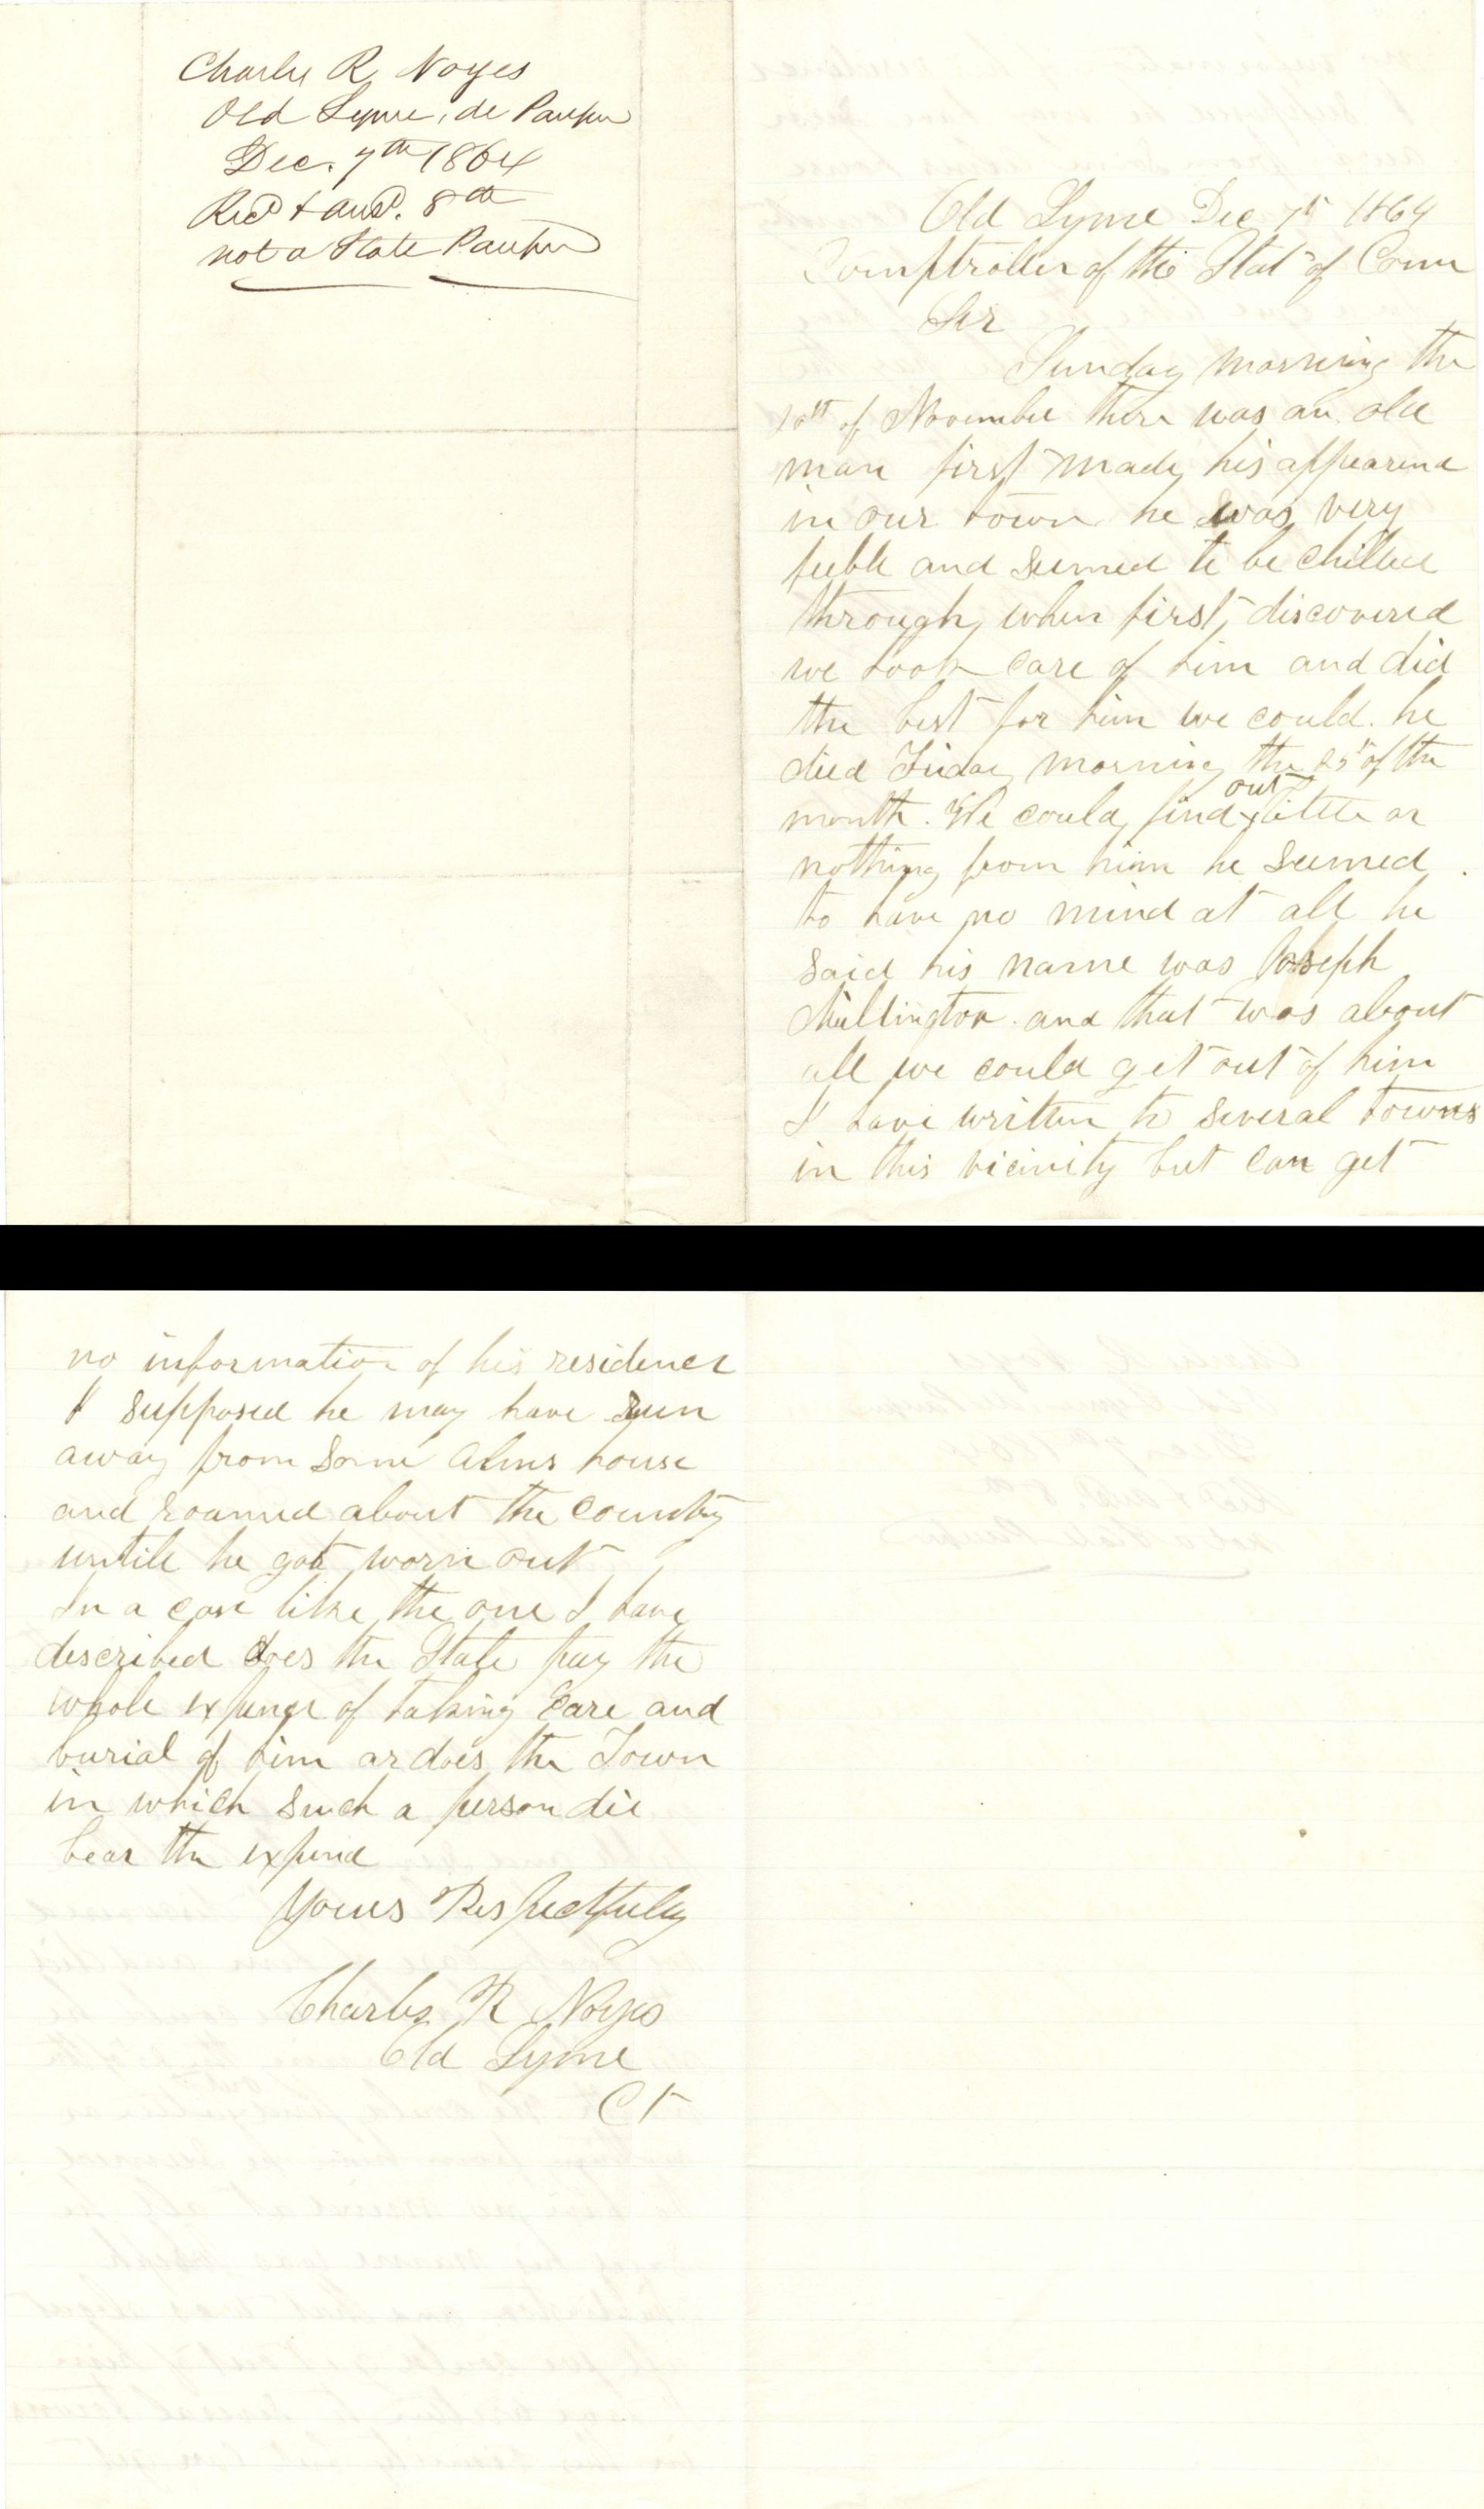 Charles R. Noyes
Old Lyme, de Pauper
Dec. 7th 1864
Recd & ansd. 8th
not a State Pauper
Old Lyme Dec 7th 1864
Comptroller of the Stat of Conn
Sir
Sunday morning the
of November there was an old
man first made his appearence
in our town he was very
feeble and seemed to be chilled
through, when first discovered
we took care of him and did
the best for him we could. he
died Friday morning the 25th of the
month. We could find out little or
nothing from him he seemed
to have no mind at all he
said his name was Joseph
and that was about
all we could get out of him
I have written to several towns
in this vicinity but can get
no information of his residence
I supposed he may have run
away from some alms house
and roamed about the country
untill he got worn out
In a case like the one I have
described does the State pay the
whole expence of taking care and
burial of him or does the Town
in which such a person die
bear the expence
Yours Respectfully
Charles R Noyes
Old Lyme
Ct